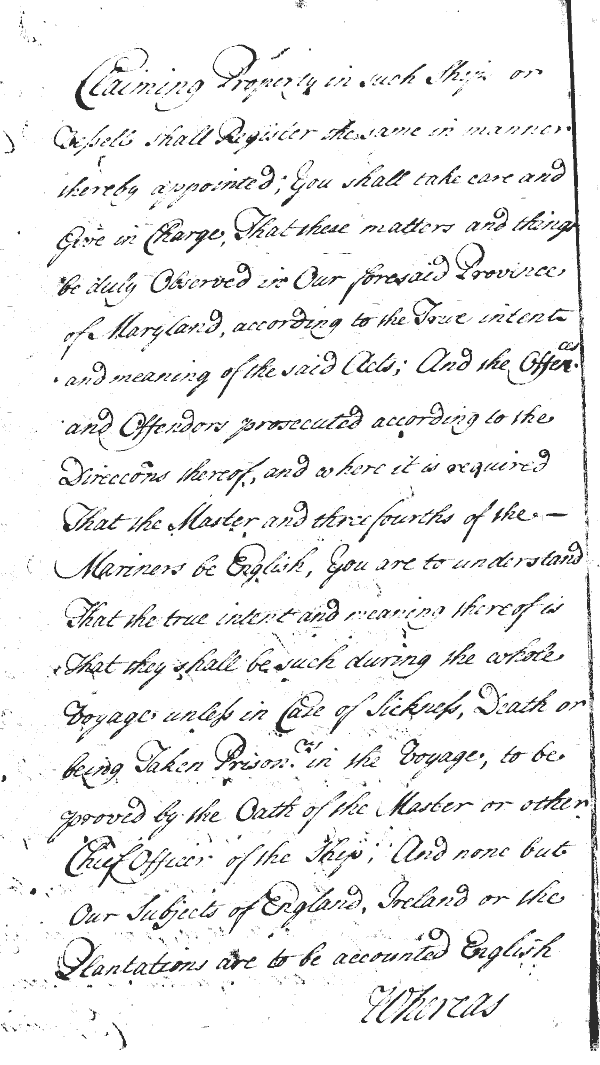 Claiming Property in such Ship or
Vessell shall Register the same in manner
thereby appointed; You shall take care and
Give in Charge, That these matters and things
be duly Observed in Our foresaid Province
of Maryland, according to the True intent
and meaning of the said Acts; And the Offences
and Offendors prosecuted according to the
Direccons thereof, and where it is required
That the Master and three fourths of the —
Mariners be English, You are to understand
That the true intent and meaning thereof is
That they shall be such during the whole
Voyage unless in Case of Sickness, Death or
being Taken Prison.ers in the Voyage, to be
proved by the Oath of the Master or other
Chief Officer of the Ship; And none but
Our Subjects of England, Ireland or the
Plantations are to be accounted English
Whereas